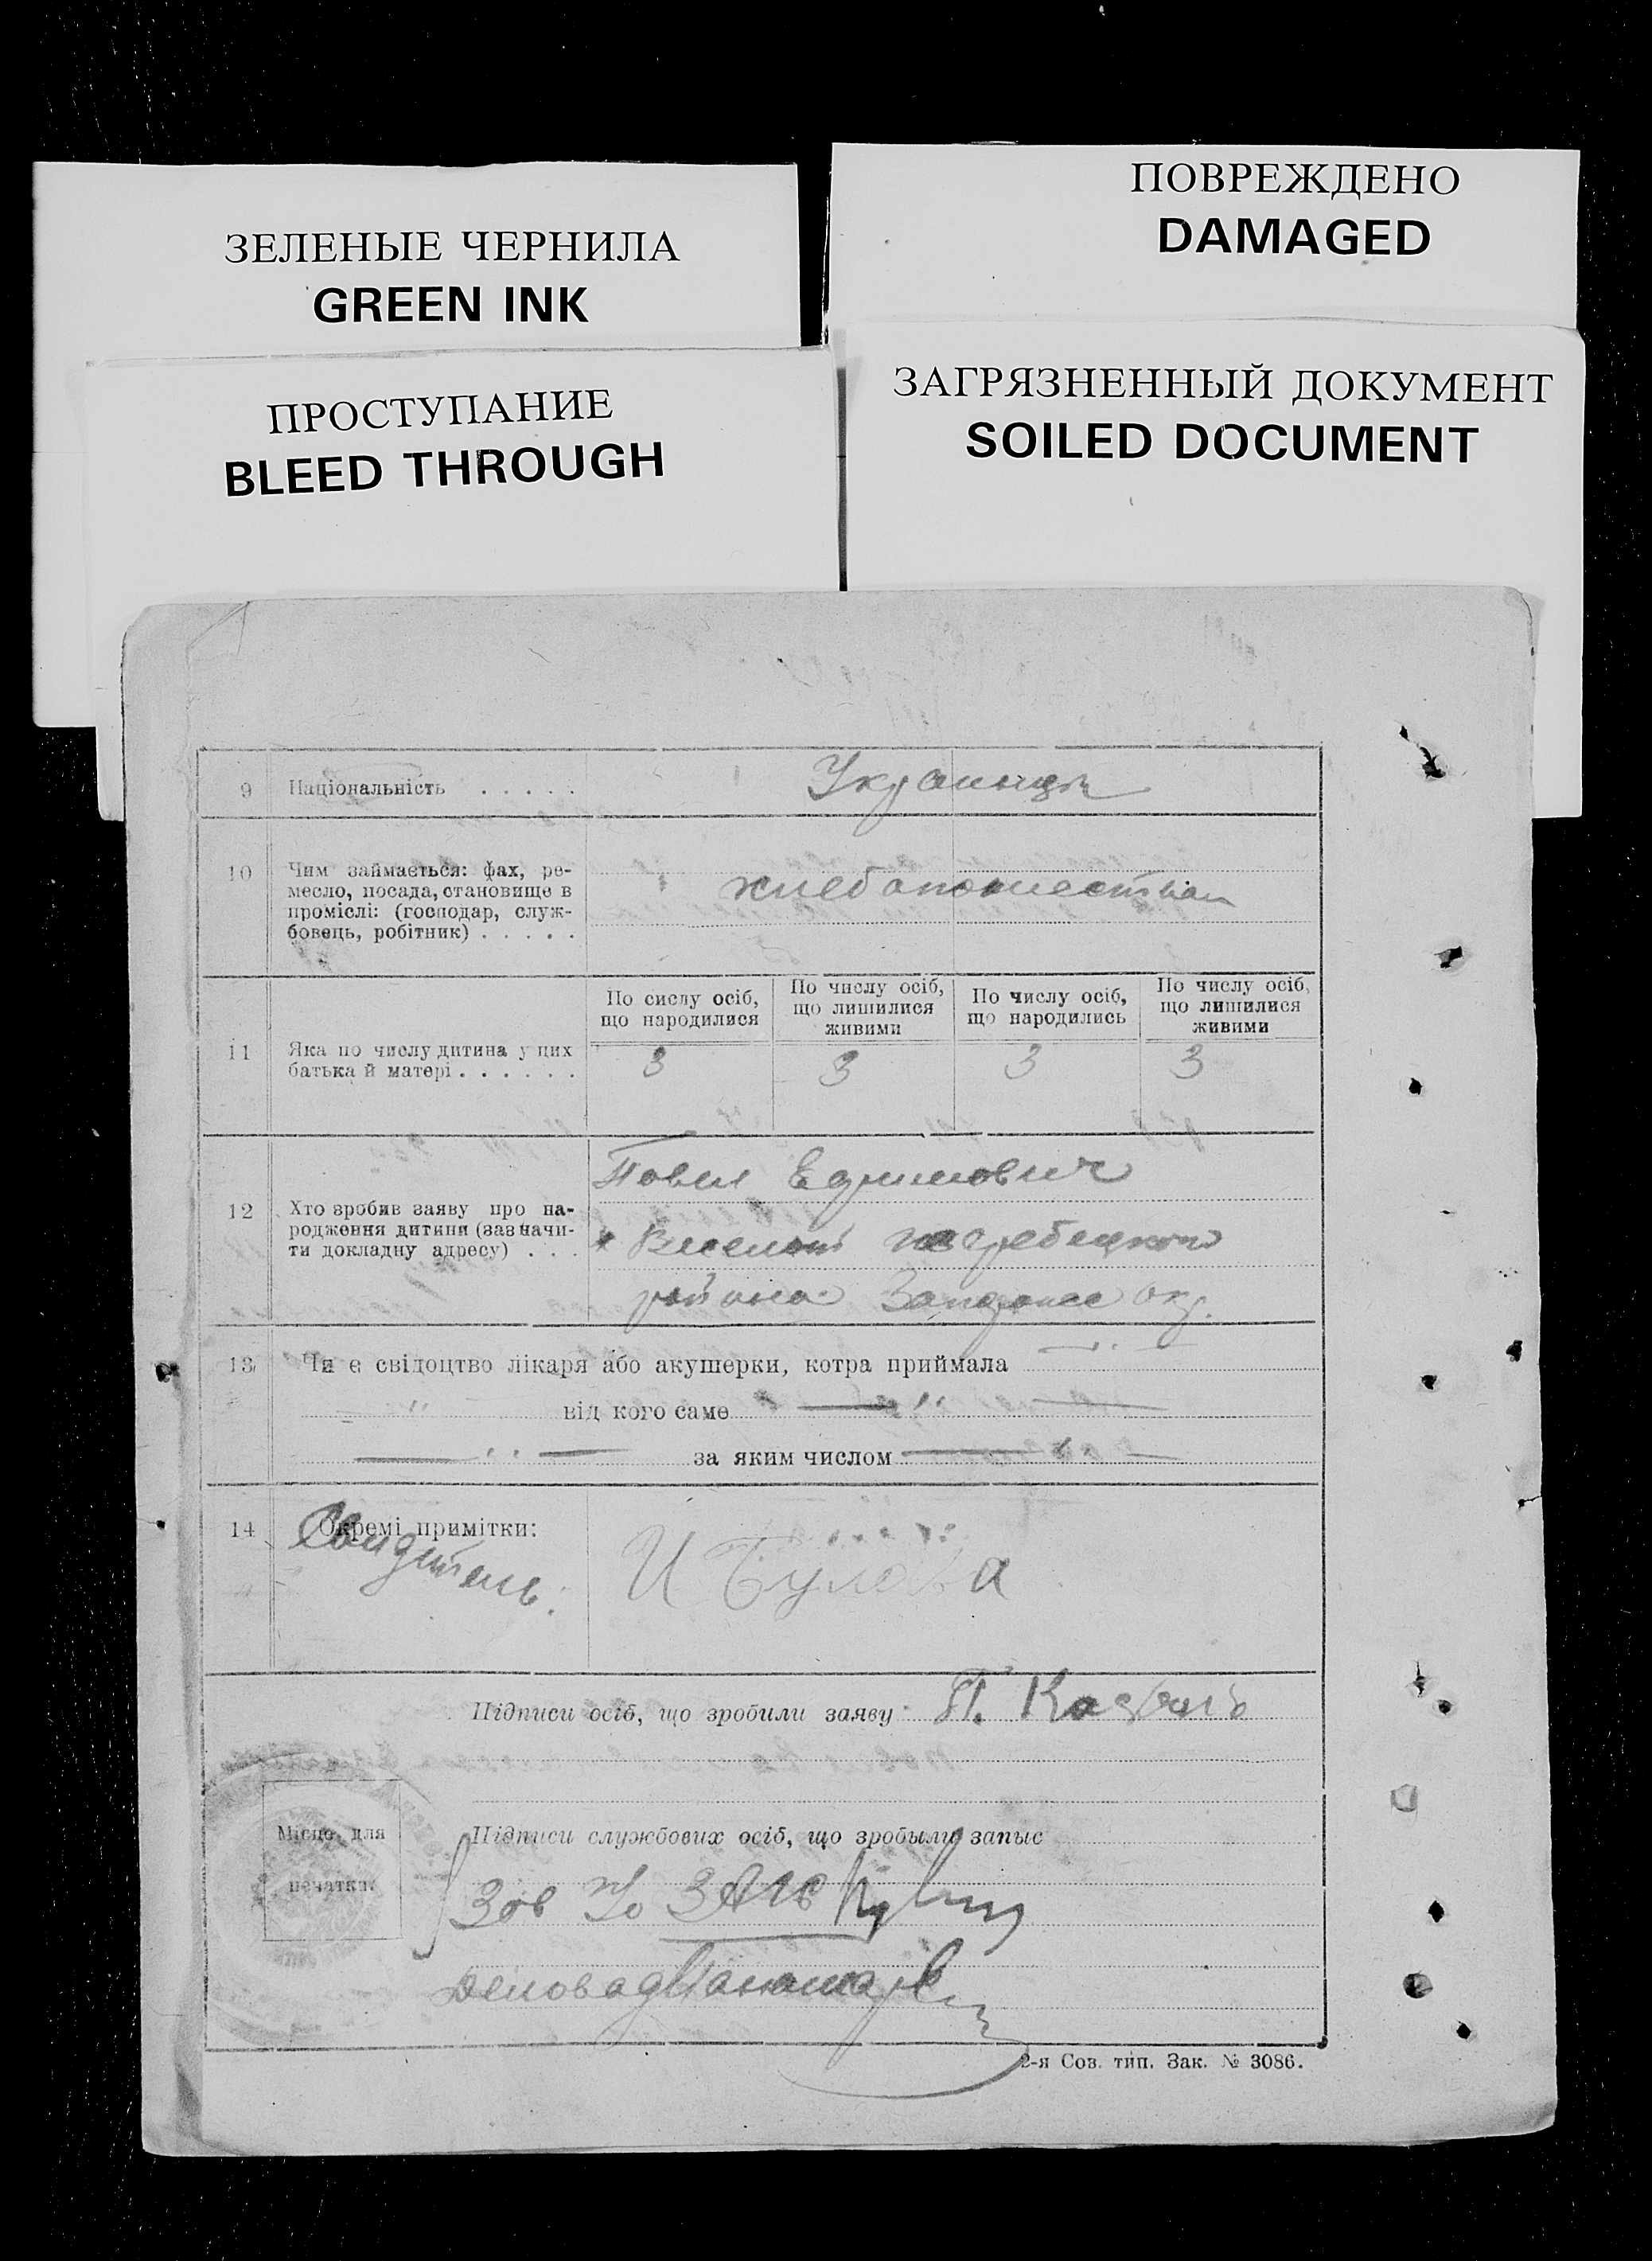 ЗЕЛЕНЫЕ ЧЕРНИЛА
GREEN INK
ПОВРЕЖДЕНО
DAMAGED
ПРОСТУПАНИЕ
BLEED THROUGH
ЗАГРЯЗНЕННЫЙ ДОКУМЕНТ
SOILED DOCUMENT
9 Національність . . . . . Украинци
10 Чим займається: фах, ре-
месло, посада, становище в
проміслі: (господар, служ-
бовець, робітник) . . . . .
По сислу осіб,
що народилися
По числу осіб,
що лишилися
живими
По числу осіб,
що народились
По числу осіб,
що лишилися
живими
11 Яка по числу дитина у цих
батька й матері . . . . . .
3 3 3 3
12 Хто зробив заяву про на-
родження дитини (зазначи-
ти докладну адресу) . . .
Ефимович
района окр.
13 Чи є свідоцтво лікаря або акушерки, котра приймала
від кого саме
за яким числом
14 Окремі примітки:
Свидитель:
И Булава
Підписи осіб, що зробили заяву П.
Місце для
печатки
Підписи службових осіб, що зробылы запыс
Зав ЗАГС
Деловод
2-я Сов. тип. Зак. № 3086.